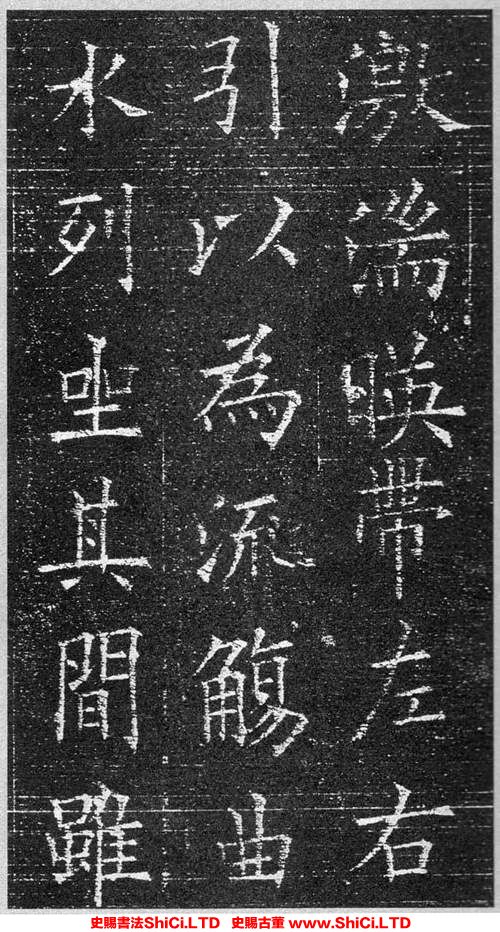 激湍暎帶左右
引以為流觴曲
水列坐其間雖
史賜書法ShiCi.LTD 史賜古董 www.ShiCi.LTD